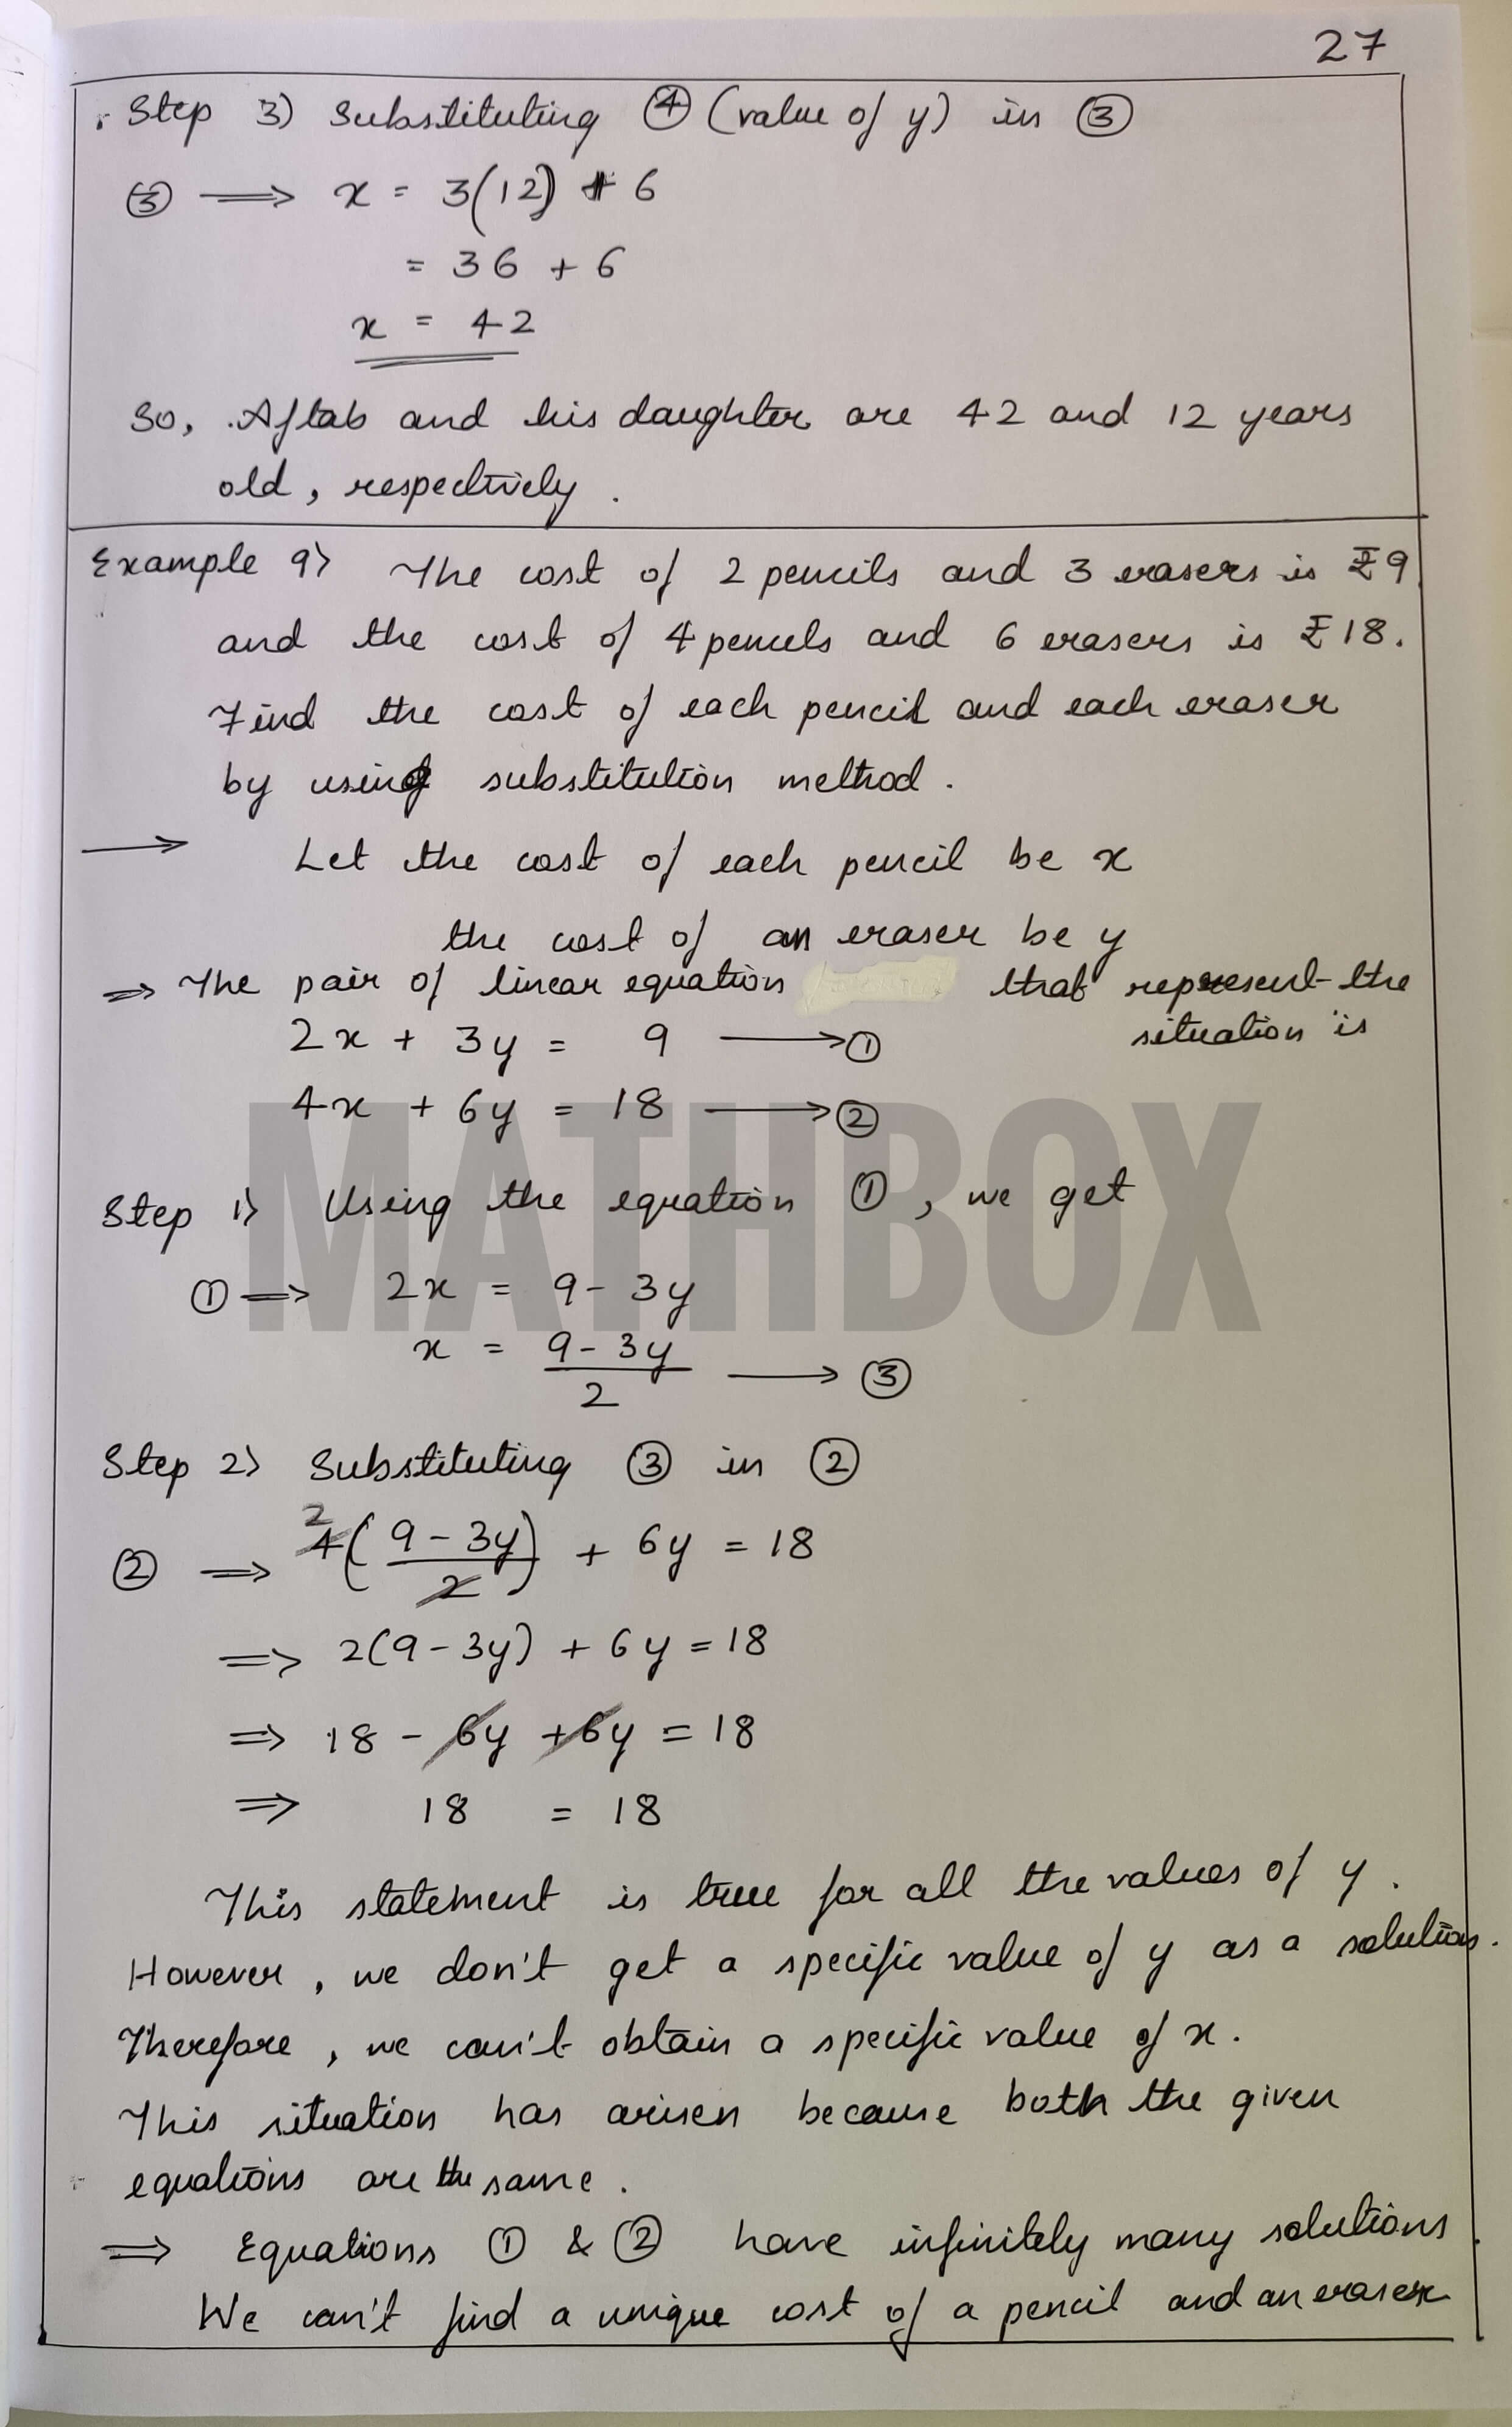 27
Step 3) Substituting ④ (value of y) in ③
③ ⟹ x = 3(12) + 6
= 36 + 6
x = 42
So, Aftab and his daughter are 42 and 12 years
old, respectively.
Example 9) The cost of 2 pencils and 3 erasers is ₹9
and the cost of 4 pencils and 6 erasers is ₹18.
Find the cost of each pencil and each eraser
by using substitution method.
→ Let the cost of each pencil be x
the cost of an eraser be y
⇒ The pair of linear equation that represent the
situation is
2x + 3y = 9 ⟶ ①
4x + 6y = 18 ⟶ ②
MATHBOX
Step 1) Using the equation ①, we get
① ⟹ 2x = 9 - 3y
x = (9 - 3y)/2 ⟶ ③
Step 2) Substituting ③ in ②
2
② ⟹ 4((9 - 3y)/2) + 6y = 18
⟹ 2(9 - 3y) + 6y = 18
⟹ 18 - 6y + 6y = 18
⟹ 18 = 18
This statement is true for all the values of y.
However, we don't get a specific value of y as a solution.
Therefore, we can't obtain a specific value of x.
This situation has arisen because both the given
equations are the same.
⟹ Equations ① & ② have infinitely many solutions.
We can't find a unique cost of a pencil and an eraser